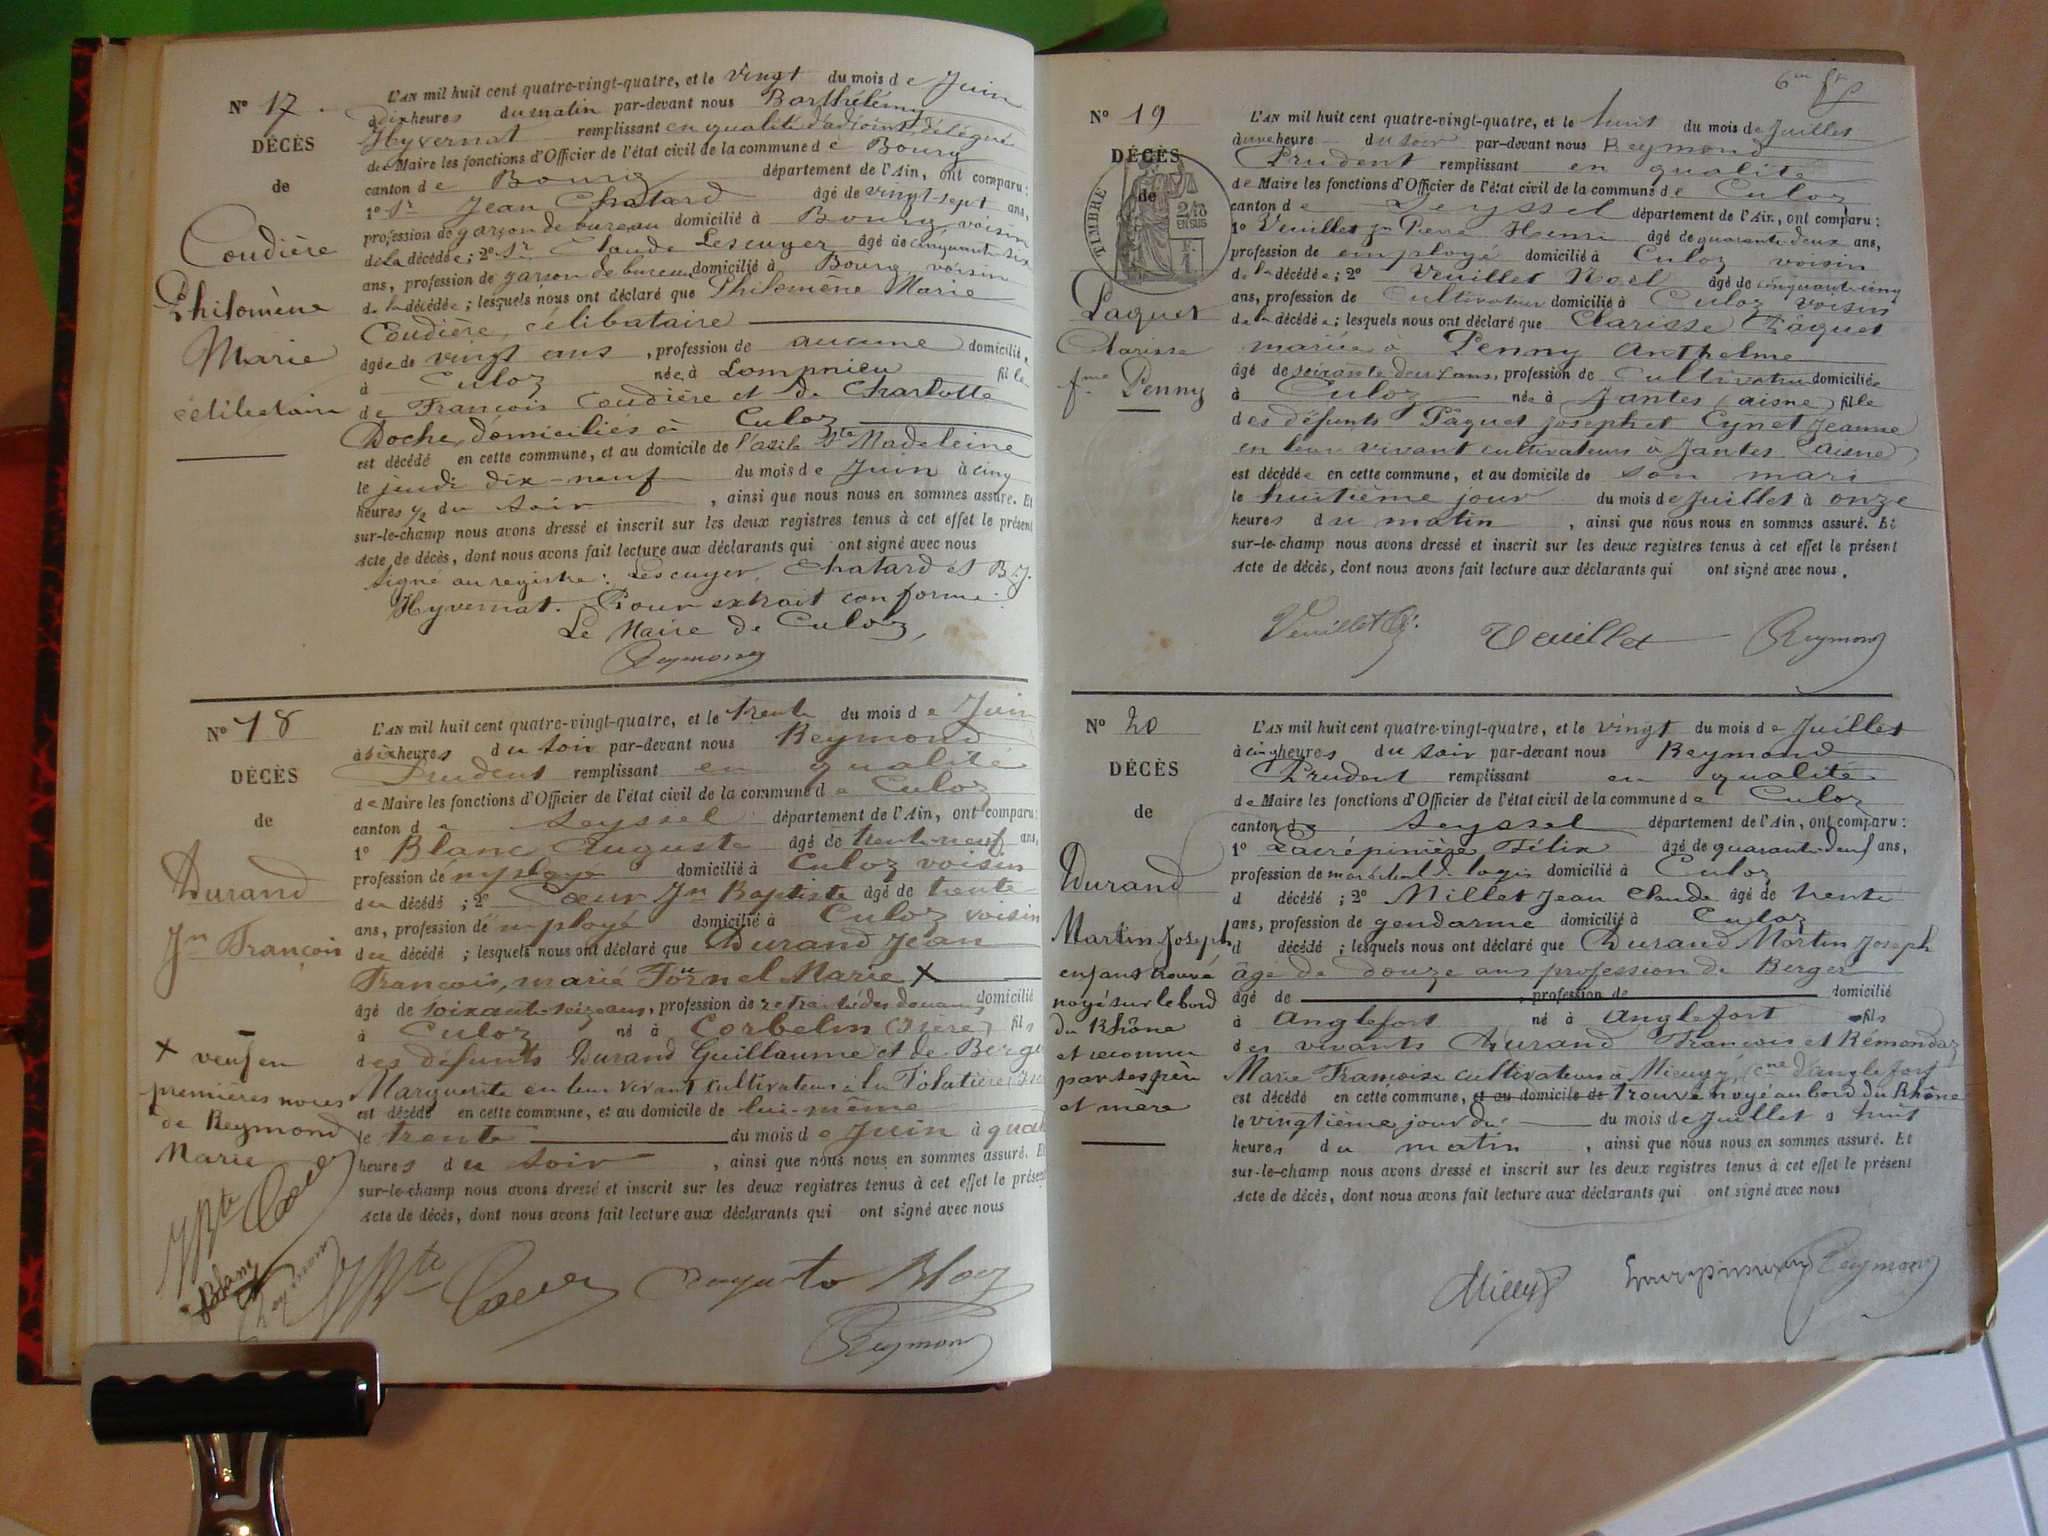 N° 17
DÉCÈS
de
Coudière
Philomène
Marie
célibataire
L'AN mil huit cent quatre-vingt-quatre, et le Vingt du mois de Juin
à dix heures du matin par-devant nous Barthélémy
Hyvernat remplissant en qualité d'adjoint délégué
de Maire les fonctions d'Officier de l'état civil de la commune de Bourg
canton de Bourg département de l'Ain, ont comparu :
1° Sr Jean Chatard âgé de vingt-sept ans,
profession de garçon de bureau domicilié à Bourg, voisin
de la décédée ; 2° Sr Claude Lescuyer âgé de cinquante six
ans, profession de garçon de bureau domicilié à Bourg, voisin
de la décédée ; lesquels nous ont déclaré que Philomène Marie
Coudière, célibataire
âgée de vingt ans, profession de aucune domiciliée
à Culoz née à Lompnieu fille
de François Coudière et de Charlotte
Doche, domiciliés à Culoz
est décédé en cette commune, et au domicile de l'asile Ste Madeleine
le jeudi dix-neuf du mois de Juin à cinq
heures ½ du soir, ainsi que nous nous en sommes assuré. Et
sur-le-champ nous avons dressé et inscrit sur les deux registres tenus à cet effet le présent
Acte de décès, dont nous avons fait lecture aux déclarants qui ont signé avec nous
Signé au registre : Lescuyer, Chatard et B. J.
Hyvernat. Pour extrait conforme.
Le Maire de Culoz,
Reymond
N° 18
DÉCÈS
de
Durand
Jn François
X veuf en
premières noces
de Reymond
Marie
JBte Coeur
Blanc
Reymond
L'AN mil huit cent quatre-vingt-quatre, et le trente du mois de Juin
à six heures du soir par-devant nous Reymond
Prudent remplissant en qualité
de Maire les fonctions d'Officier de l'état civil de la commune de Culoz
canton de Seyssel département de l'Ain, ont comparu :
1° Blanc Auguste âgé de trente-neuf ans,
profession de employé domicilié à Culoz voisin
du décédé ; 2° Coeur Jn Baptiste âgé de trente
ans, profession d'employé domicilié à Culoz voisin
du décédé ; lesquels nous ont déclaré que Durand Jean
François, marié Fornel Marie X
âgé de soixante-seize ans, profession de retraité des douanes domicilié
à Culoz né à Corbelin (Isère) fils
des défunts Durand Guillaume et de Berge
Marguerite en leur vivant cultivateurs à la
est décédé en cette commune, et au domicile de lui-même
le trente du mois de Juin à quat
heures du soir, ainsi que nous nous en sommes assuré. Et
sur-le-champ nous avons dressé et inscrit sur les deux registres tenus à cet effet le présent
Acte de décès, dont nous avons fait lecture aux déclarants qui ont signé avec nous
JBte Coeur Auguste Blanc
Reymond
6me
N° 19
DÉCÈS
de
TIMBRE
2/10
EN SUS
Paquet
Clarisse
fme Penny
L'AN mil huit cent quatre-vingt-quatre, et le huit du mois de Juillet
à une heure du soir par-devant nous Reymond
Prudent remplissant en qualité
de Maire les fonctions d'Officier de l'état civil de la commune de Culoz
canton de Seyssel département de l'Ain, ont comparu :
1° Veuillet Jn Pierre Henri âgé de quarante-deux ans,
profession de employé domicilié à Culoz voisin
de la décédée ; 2° Veuillet Noël âgé de cinquante cinq
ans, profession de Cultivateur domicilié à Culoz voisin
de la décédée ; lesquels nous ont déclaré que Clarisse Paquet
mariée à Penny Anthelme
âgé de soixante deux ans, profession de Cultivatrice domiciliée
à Culoz née à Jantes (aisne) fille
des défunts Paquet Joseph et Cynet Jeanne
en leur vivant cultivateurs à Jantes (Aisne)
est décédée en cette commune, et au domicile de son mari
le huitième jour du mois de Juillet à onze
heures du matin, ainsi que nous nous en sommes assuré. Et
sur-le-champ nous avons dressé et inscrit sur les deux registres tenus à cet effet le présent
Acte de décès, dont nous avons fait lecture aux déclarants qui ont signé avec nous.
Veuillet Veuillet Reymond
N° 20
DÉCÈS
de
Durand
Martin Joseph
enfant trouvé
noyé sur le bord
du Rhône
et reconnu
par ses père
et mère
L'AN mil huit cent quatre-vingt-quatre, et le vingt du mois de Juillet
à cinq heures du soir par-devant nous Reymond
Prudent remplissant en qualité
de Maire les fonctions d'Officier de l'état civil de la commune de Culoz
canton de Seyssel département de l'Ain, ont comparu :
1° Lacrépinière Félix âgé de quarante-neuf ans,
profession de maréchal de logis domicilié à Culoz
d décédé ; 2° Millet Jean Claude âgé de trente
ans, profession de gendarme domicilié à Culoz
d décédé ; lesquels nous ont déclaré que Durand Martin Joseph
âgé de douze ans profession de Berger
âgé de , profession de domicilié
à Anglefort né à Anglefort fils
des vivants Durand François et Rémondaz
Marie Françoise cultivateurs à Mieugy, Cne d'anglefort
est décédé en cette commune, et au domicile de trouvé noyé au bord du Rhône
le vingtième jour du du mois de Juillet à huit
heures du matin, ainsi que nous nous en sommes assuré. Et
sur-le-champ nous avons dressé et inscrit sur les deux registres tenus à cet effet le présent
Acte de décès, dont nous avons fait lecture aux déclarants qui ont signé avec nous
Millet Lacrépinière Reymond